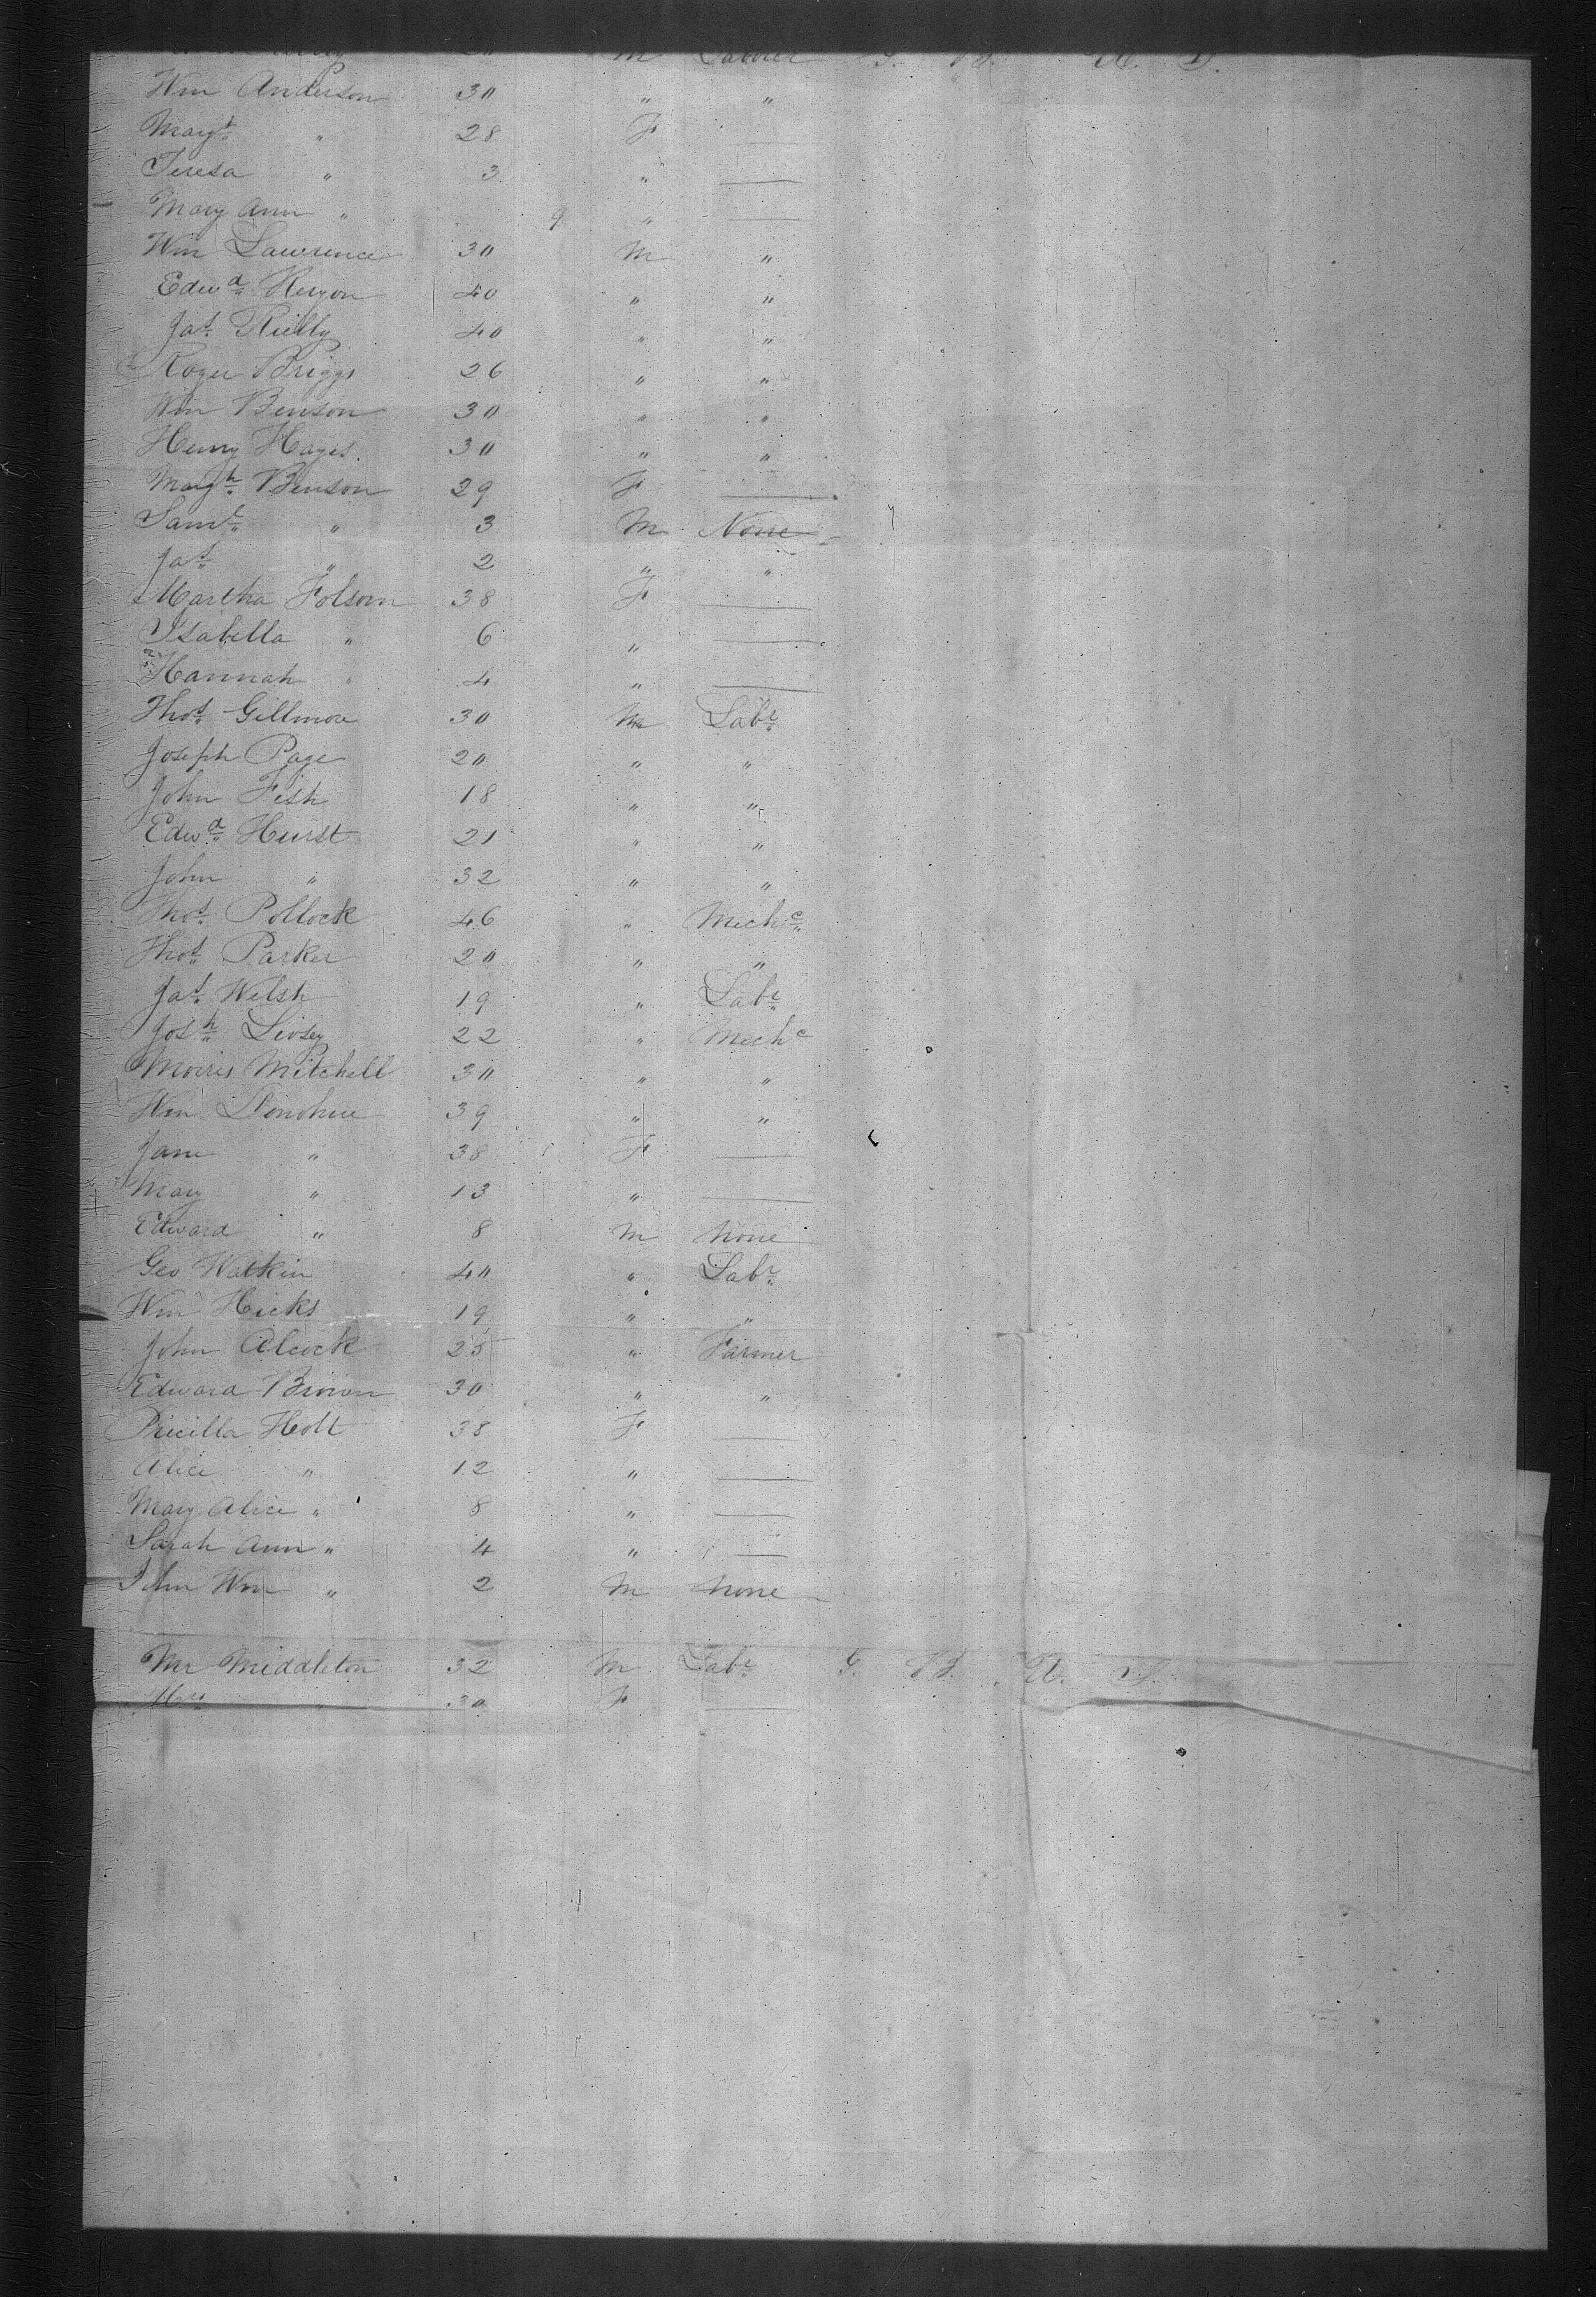 M Laborer G. B. U. S.
Wm Anderson 30 " "
Margt " 28 F
Teresa " 3 "
Mary Ann " 9 "
Wm Lawrence 30 M "
Edwd Kenyon 40 " "
Jas Rielly 40 " "
Roger Briggs 26 " "
Wm Benson 30 " "
Henry Hayes 30 " "
Margh Benson 29 F
Saml " 3 M None
Jas " 2 " "
Martha Folsom 38 F
Isabella " 6 "
Hannah " 4 "
Thos Gillmore 30 M Labr
Joseph Page 20 " "
John Fish 18 " "
Edwd Hurst 21 " "
John " 32 " "
Thos Pollock 46 " Mechc
Thos Parker 20 " "
Jas Welsh 19 " Labr
Josh Livsey 22 " Mechc
Morris Mitchell 30 " "
Wm Donohue 39 " "
Jane " 38 F
Mary " 13 "
Edward " 8 M None
Geo Watkin 40 " Labr
Wm Hicks 19 " "
John Alcock 25 " Farmer
Edward Brown 30 " "
Pricilla Holt 38 F
Alice " 12 "
Mary Alice " 8 "
Sarah Ann " 4 "
John Wm " 2 M None
Mr Middleton 32 M Labr G. B. U. S.
Mrs " 30 F